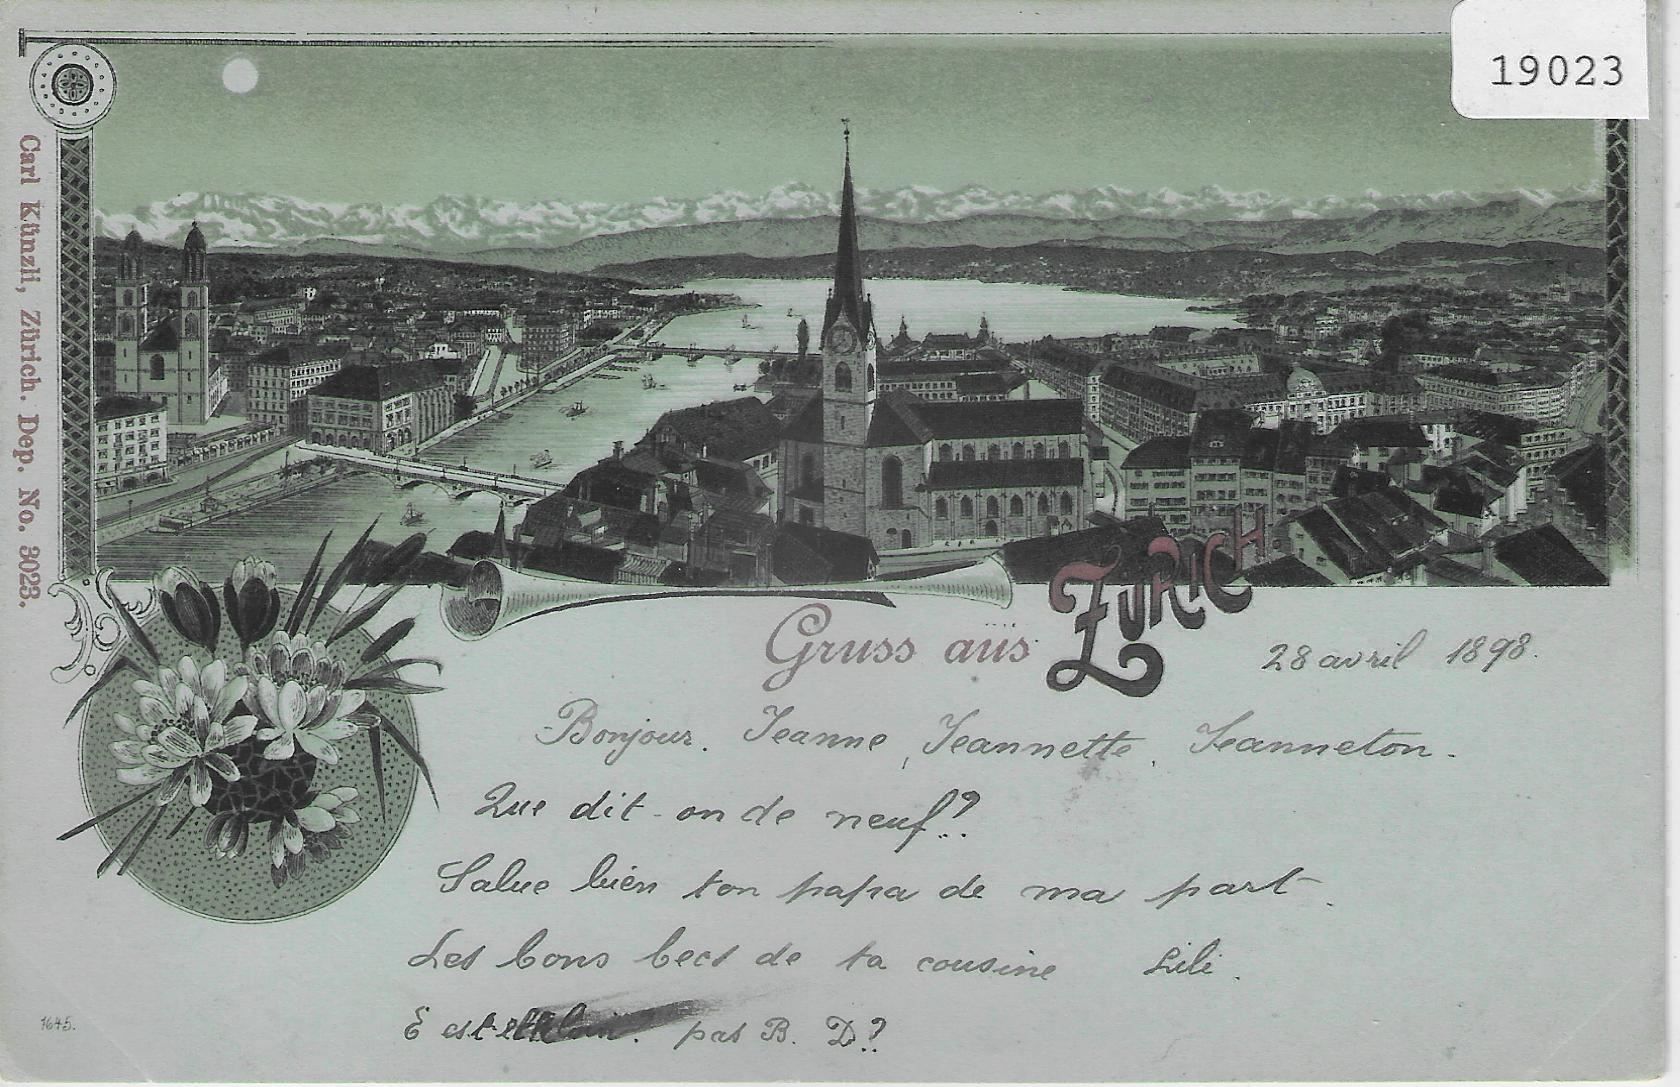 19023
Carl Künzli, Zürich. Dep. No. 3023.
Gruss aus ZÜRICH
28 avril 1898.
Bonjour. Jeanne, Jeannette, Jeanneton.
Que dit-on de neuf?
Salue bien ton papa de ma part.
Les bons becs de ta cousine Lili.
E est-elle pas B. D.?
1645.